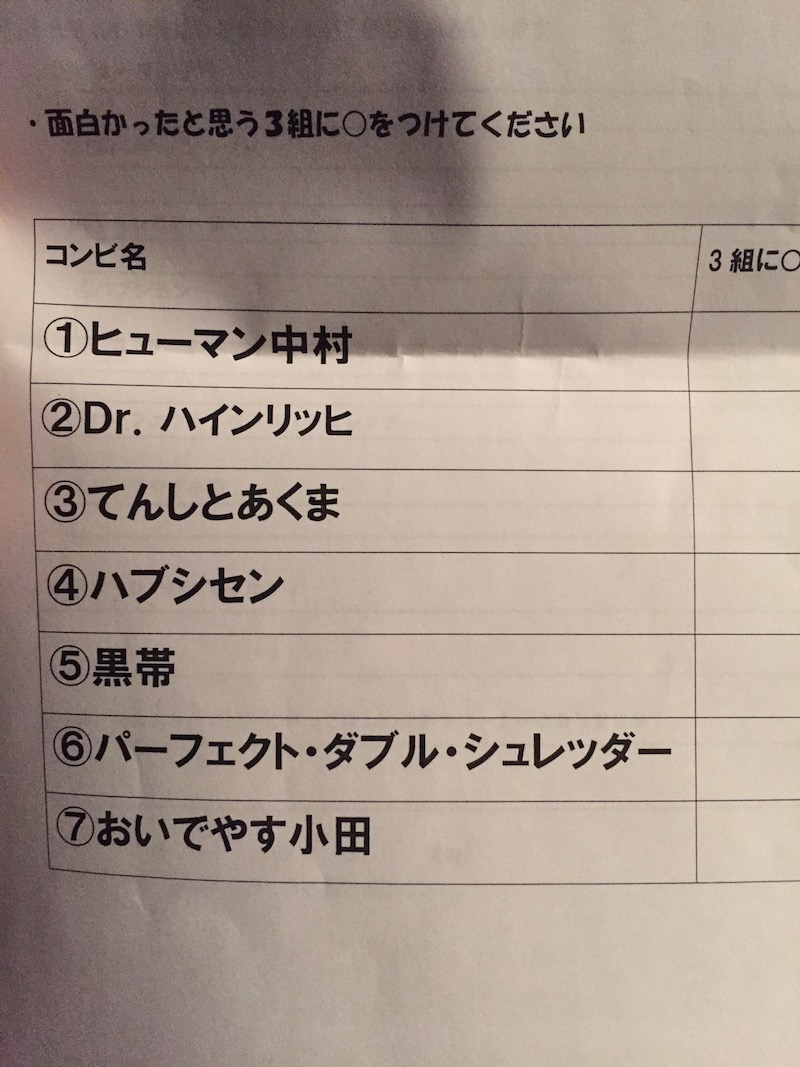 ・面白かったと思う3組に○をつけてください
コンビ名
3組に○
①ヒューマン中村
②Dr. ハインリッヒ
③てんしとあくま
④ハブシセン
⑤黒帯
⑥パーフェクト・ダブル・シュレッダー
⑦おいでやす小田